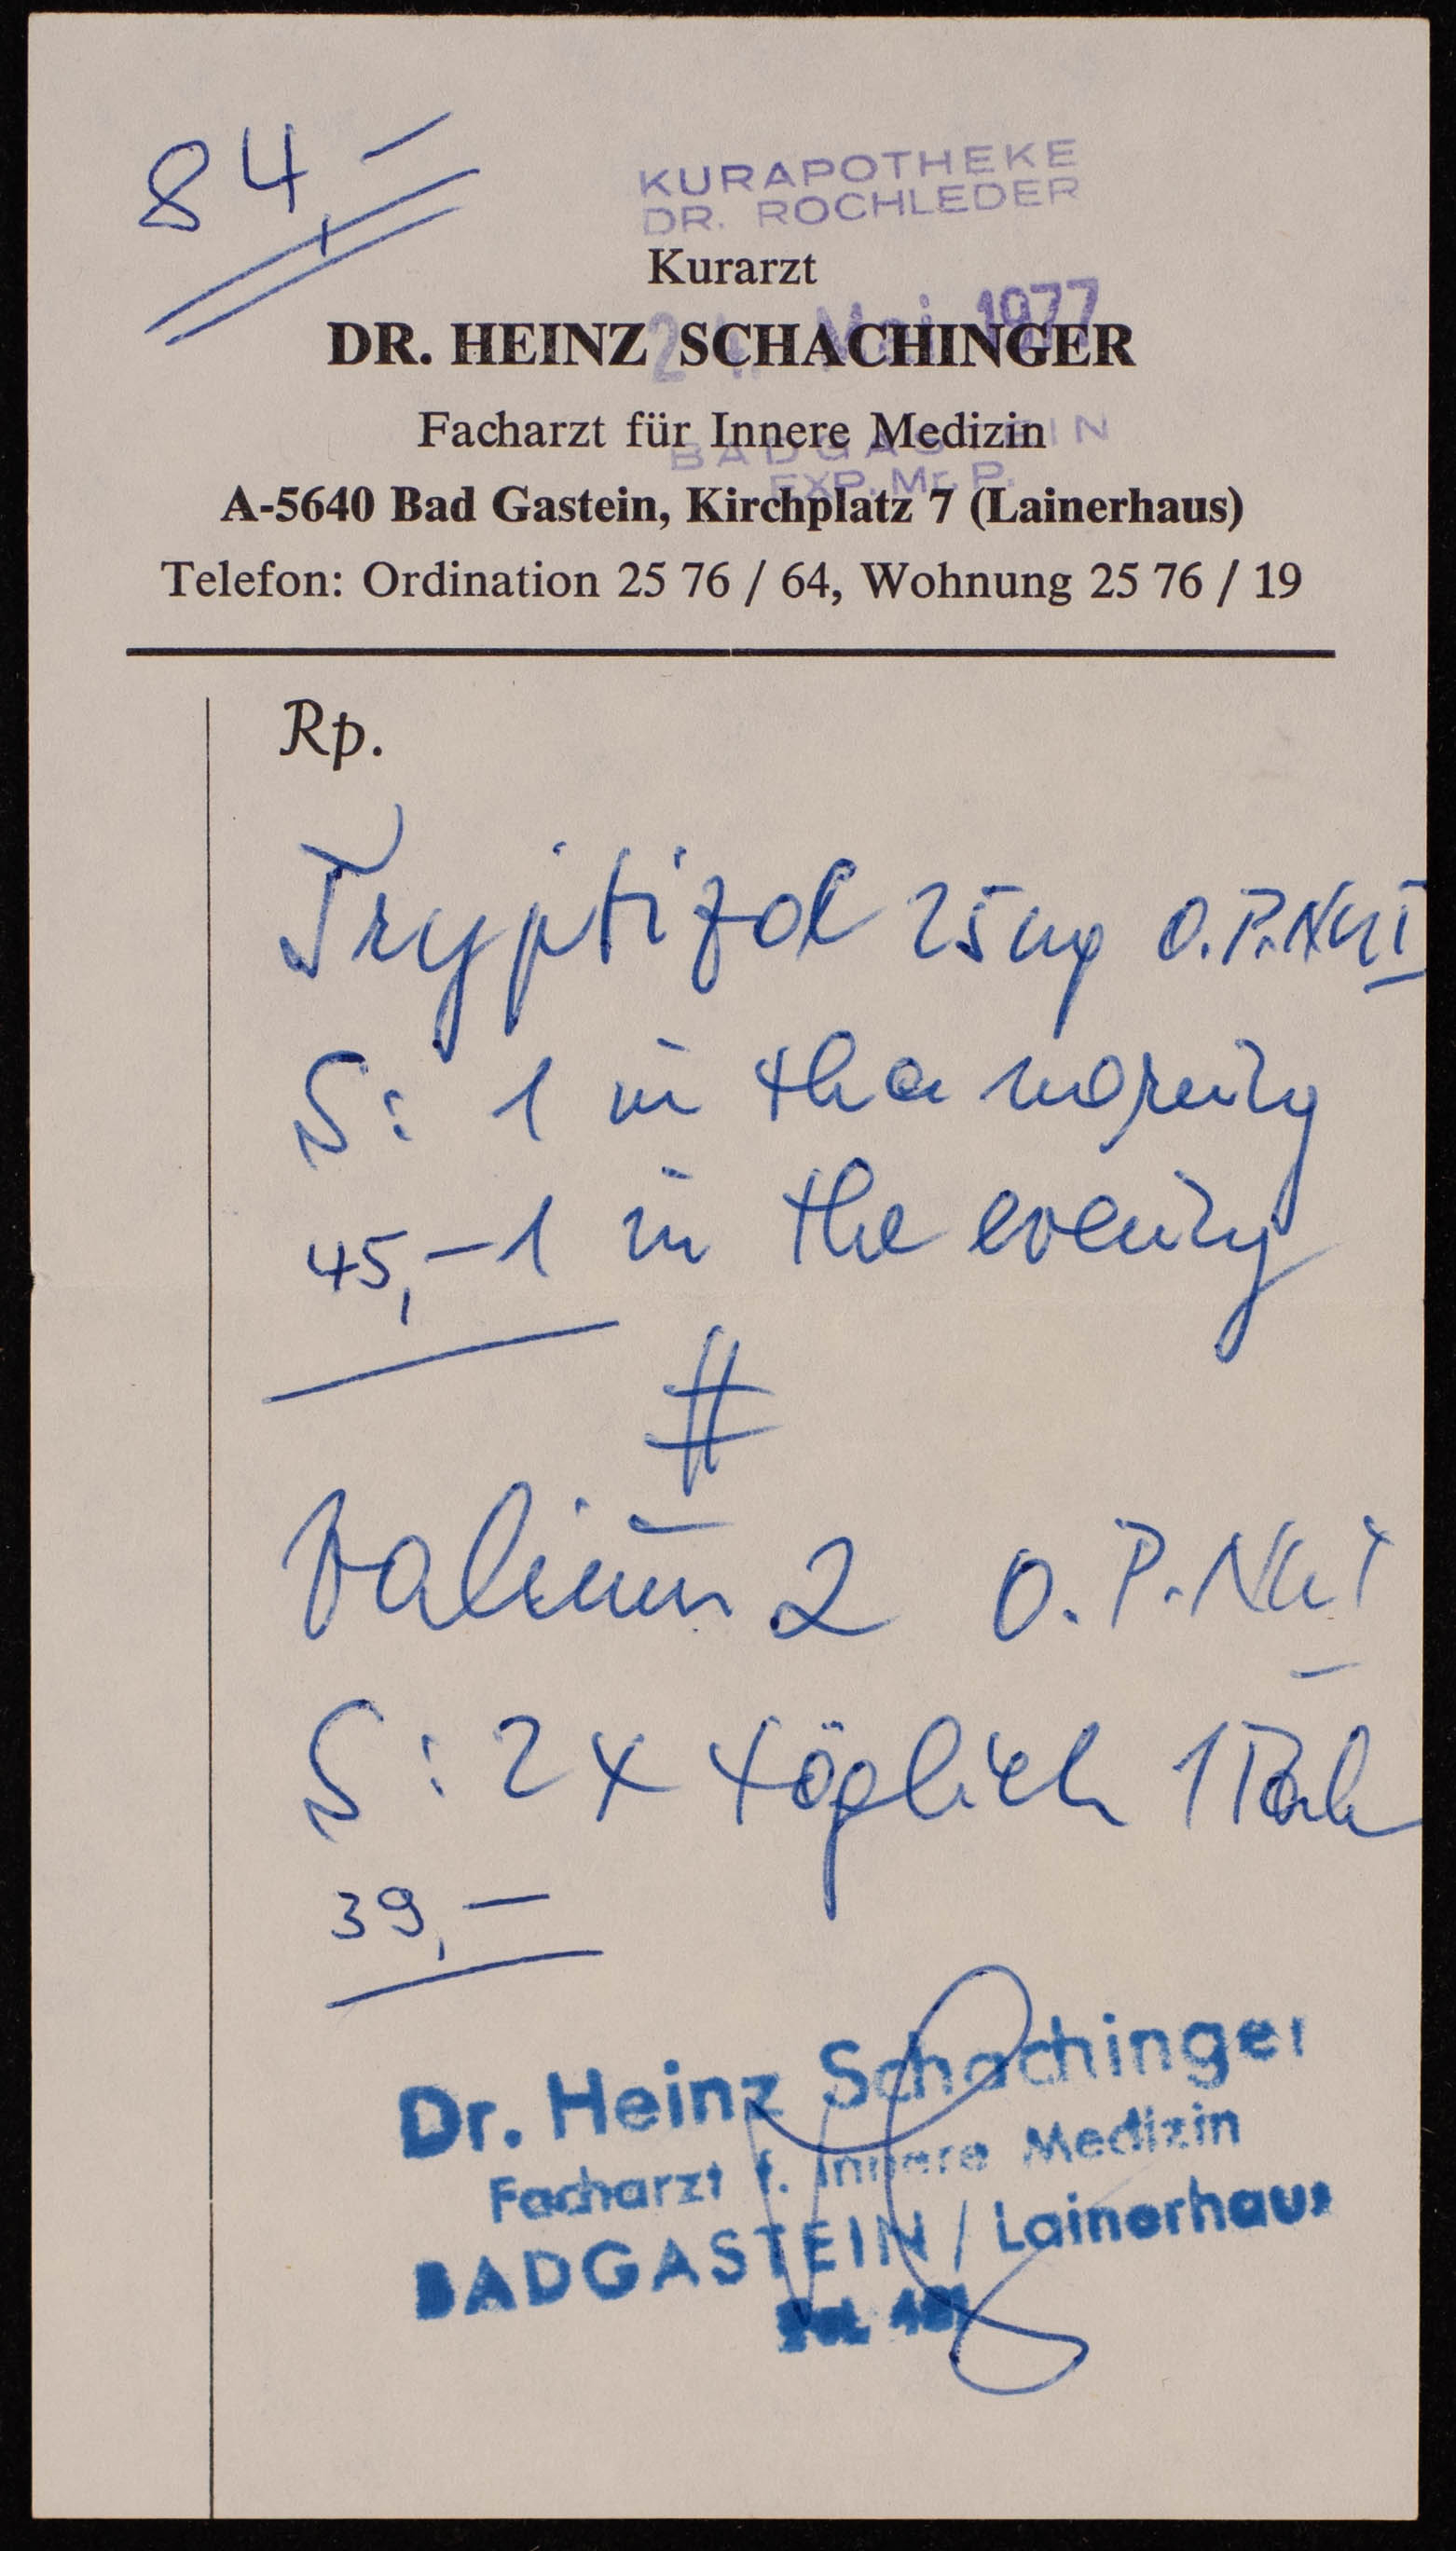 84,-
KURAPOTHEKE
DR. ROCHLEDER
Kurarzt
24. Mai 1977
DR. HEINZ SCHACHINGER
Facharzt für Innere Medizin
BADGASTEIN
EXP. Mr. P.
A-5640 Bad Gastein, Kirchplatz 7 (Lainerhaus)
Telefon: Ordination 25 76 / 64, Wohnung 25 76 / 19
Rp.
Tryptizol 25mg O.P.
S: 1 in the morning
45,- 1 in the evening
#
Valium 2 O.P.
S: 2x täglich 1 Tabl
39,-
Dr. Heinz Schachinger
Facharzt f. Innere Medizin
BADGASTEIN / Lainerhaus
Tel.